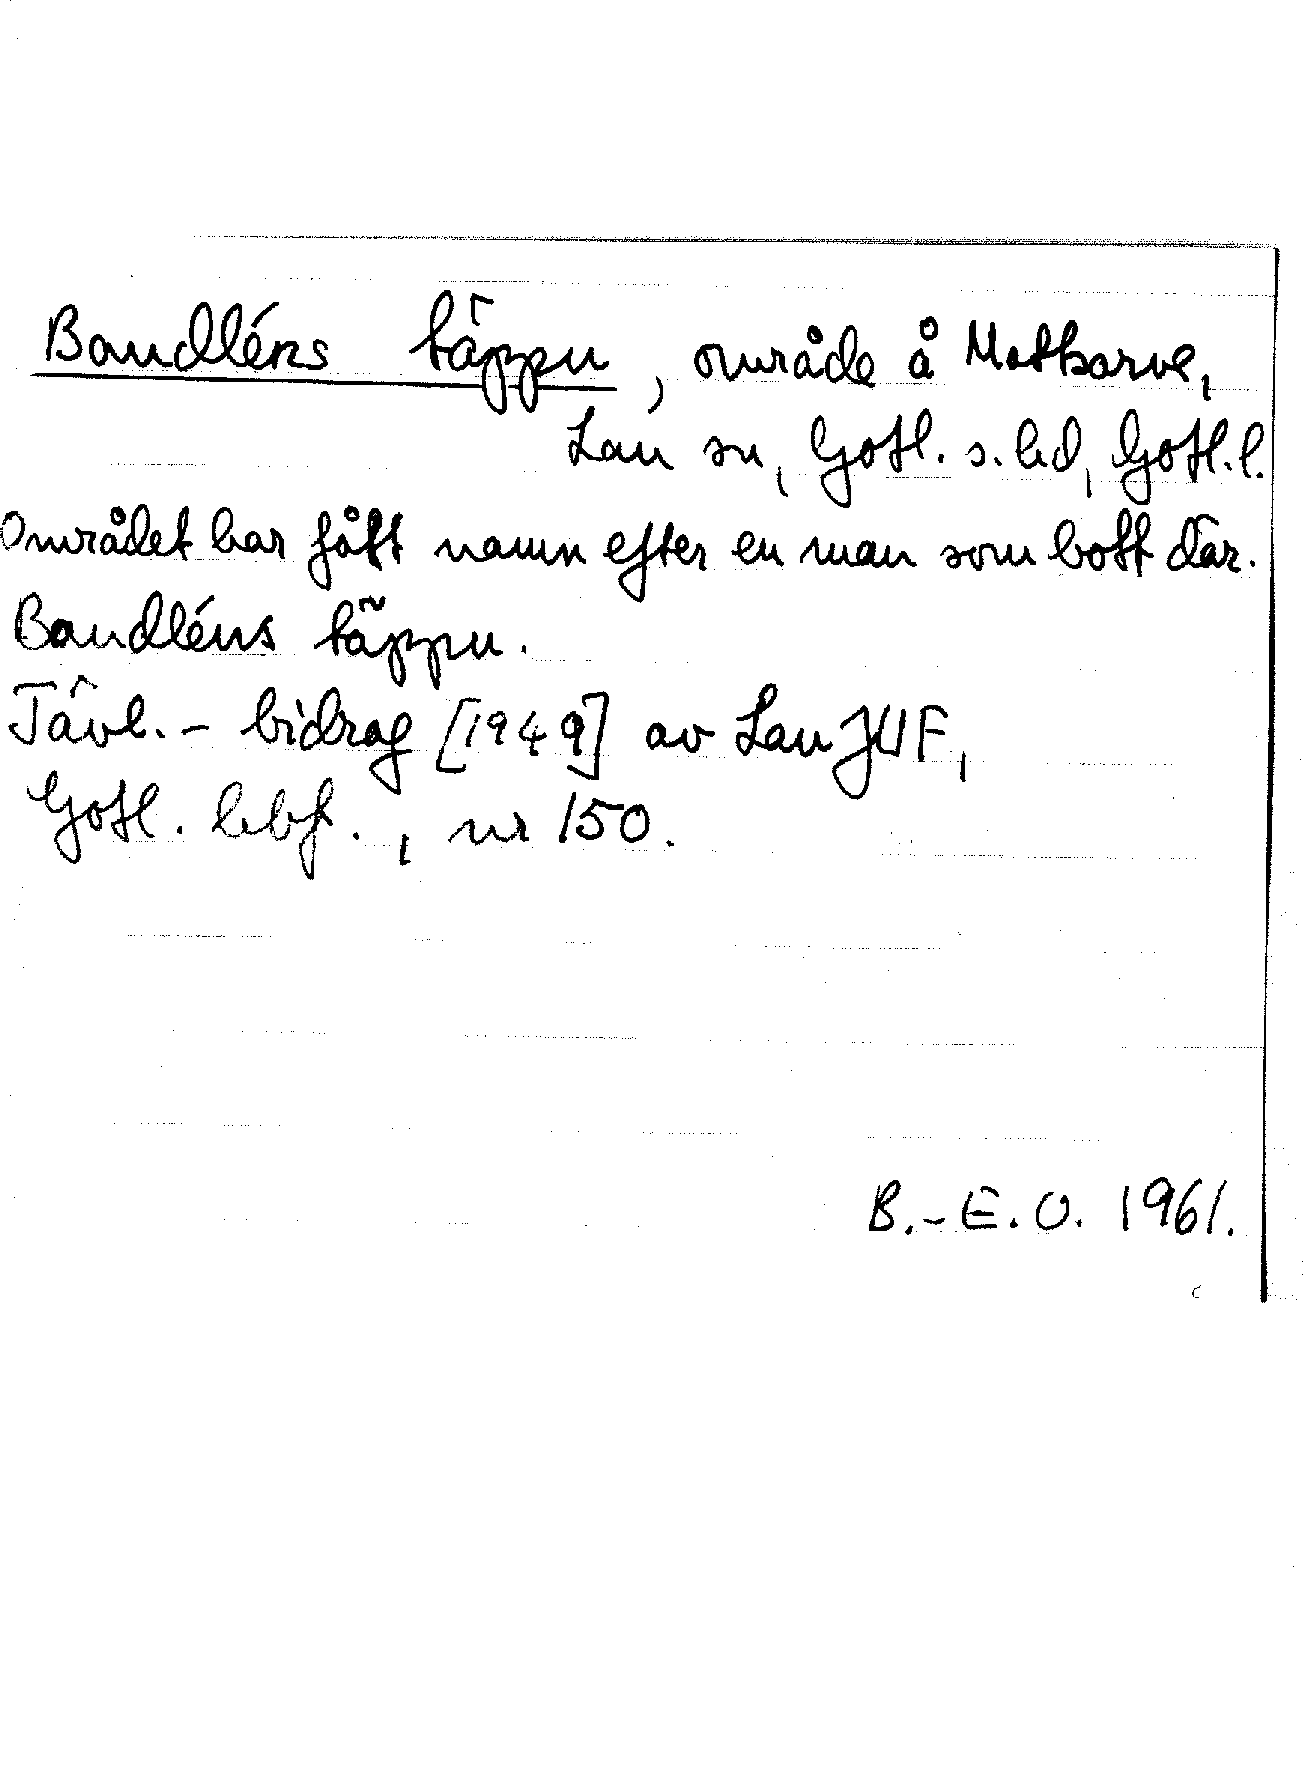 Baudléns täppu, område å Mattsarve,
Lau sn, Gotl. s. hd, Gotl. l.
Området har fått namn efter en man som bott där.
Baudléns täppu.
Tävl.-bidrag [1949] av Lau JUF,
Gotl. hbf., nr 150.
B.-E. O. 1961.